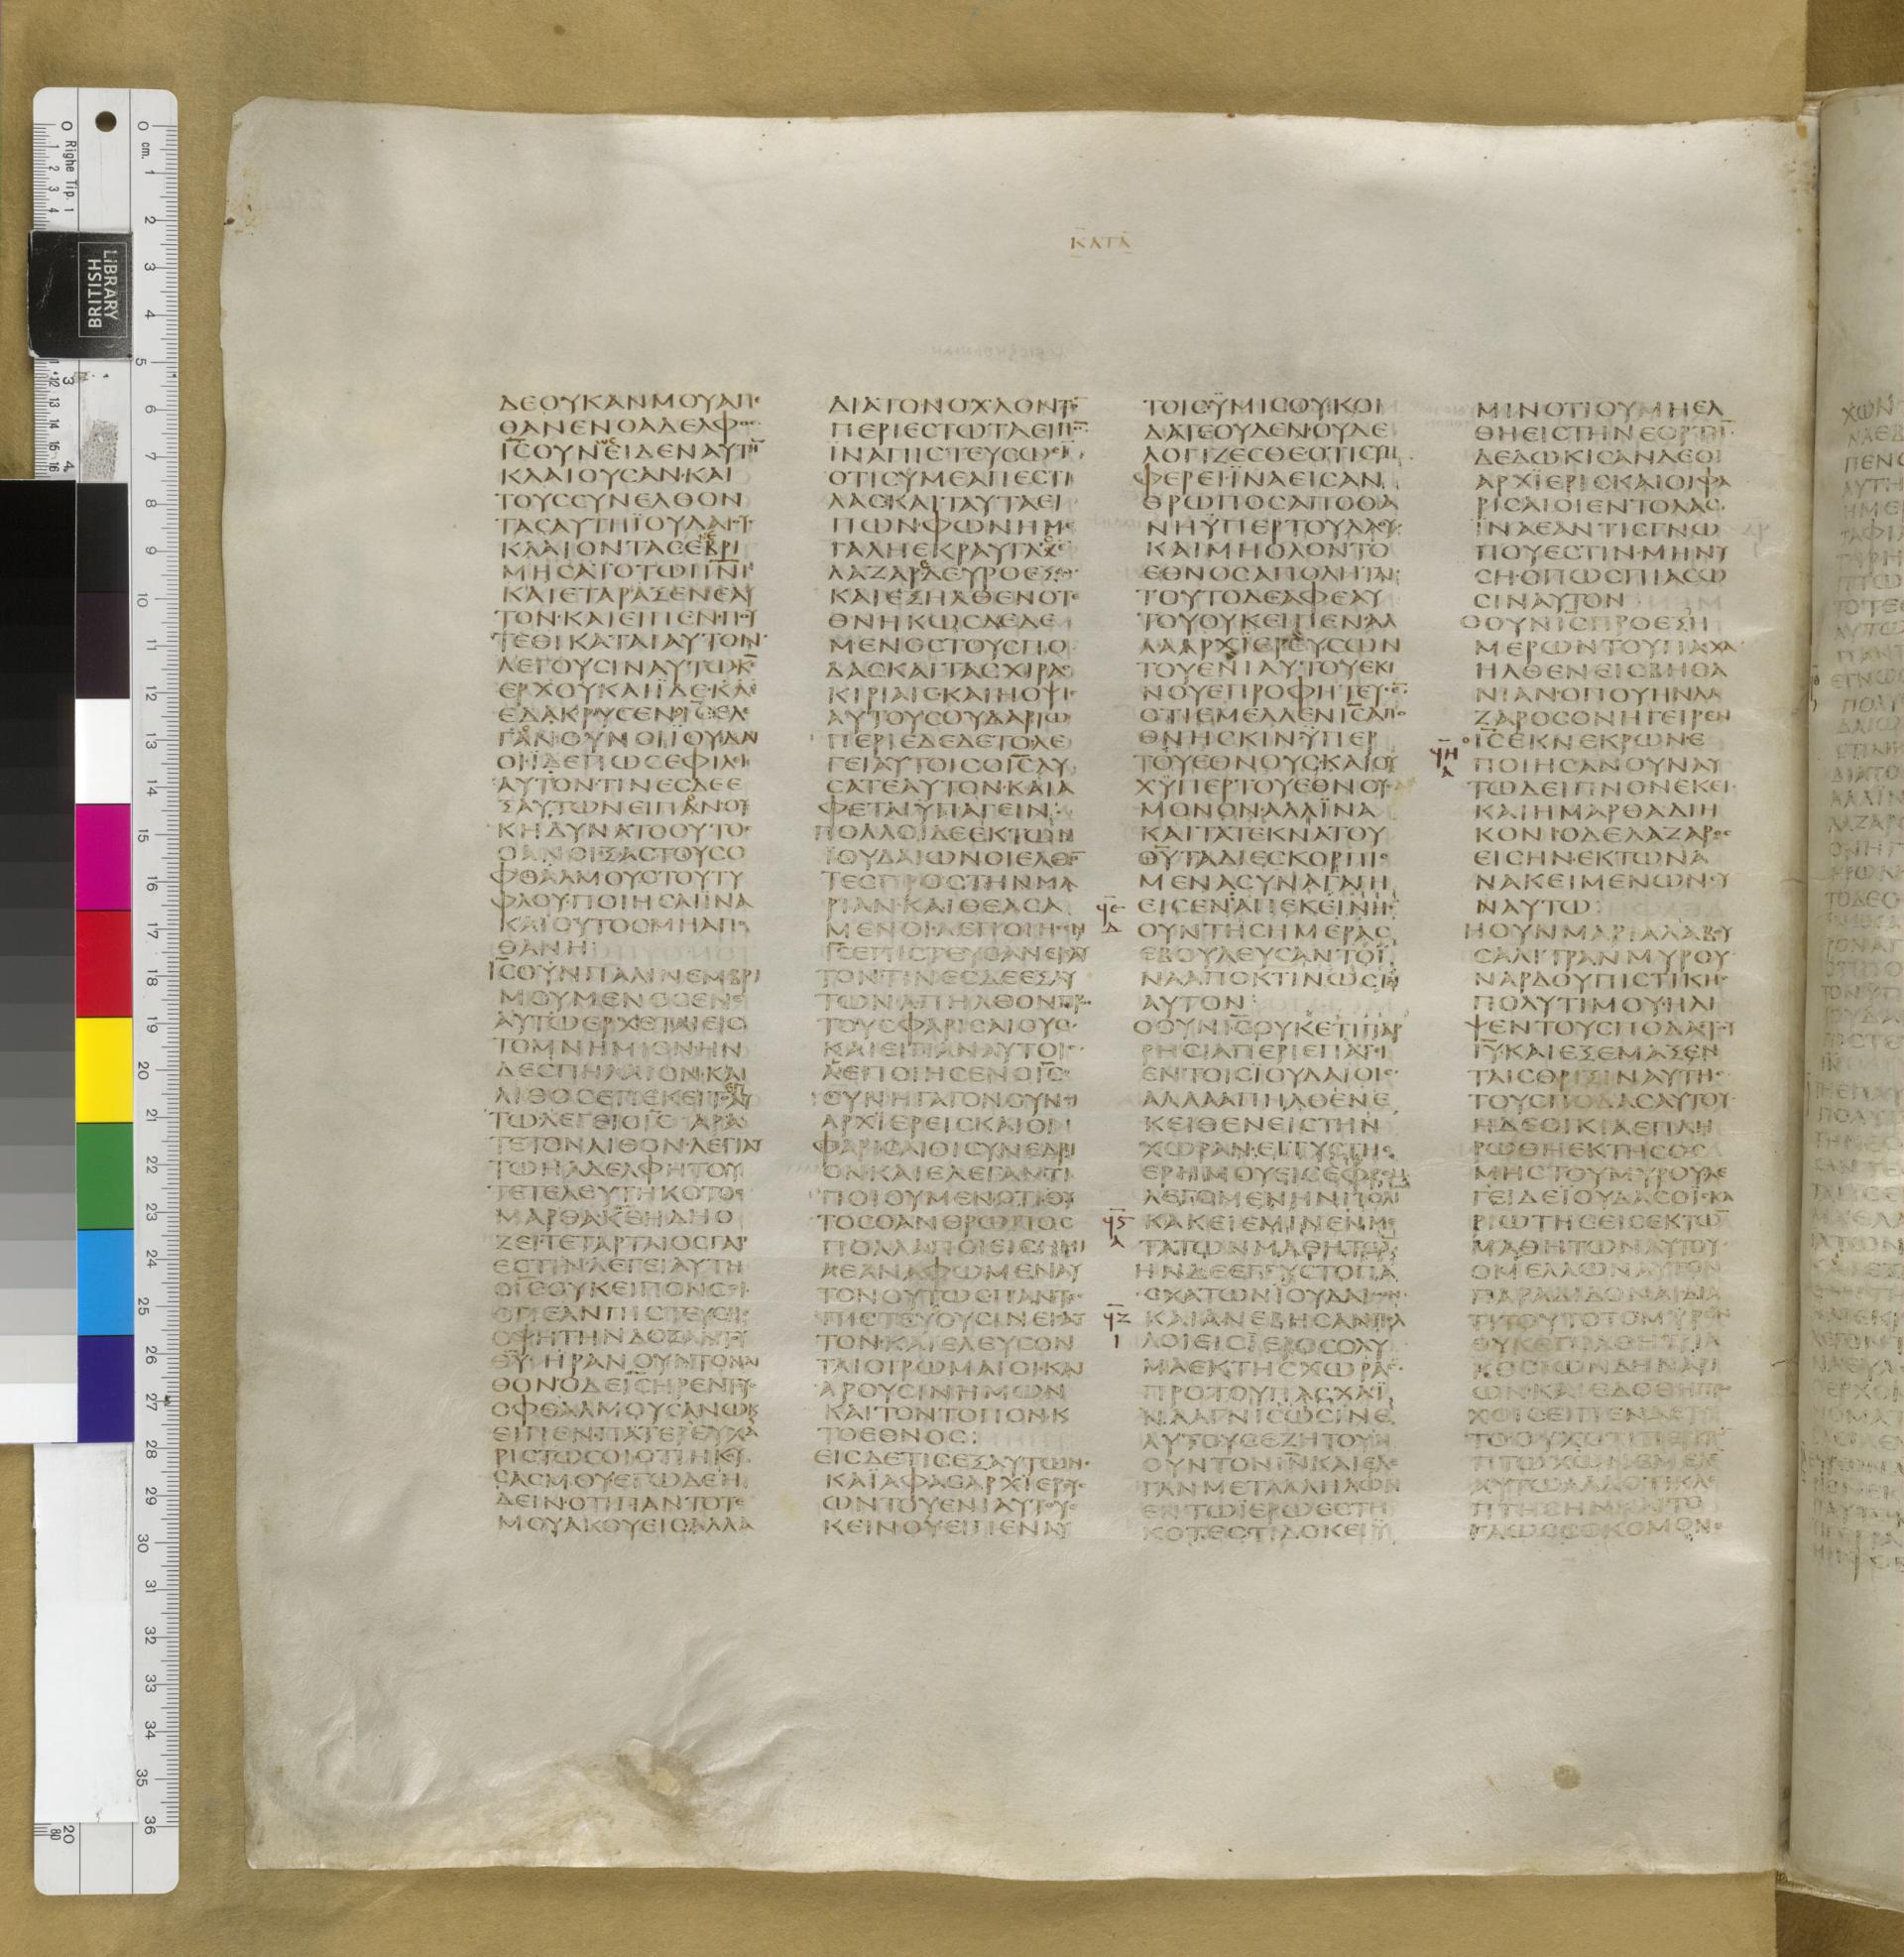 ΚΑΤΑ
ΔΕΟΥΚΑΝΜΟΥΑΠΕ
ΘΑΝΕΝΟΑΔΕΛΦΟC
ΙCΟΥΝΕΙΔΕΝΑΥΤΗ
ΚΛΑΙΟΥCΑΝ·ΚΑΙ
ΤΟΥCCΥΝΕΛΘΟΝ
ΤΑCΑΥΤΗΪΟΥΔΑΙΟΥ
ΚΛΑΙΟΝΤΑCΕΒΡΙ
ΜΗCΑΤΟΤΩΠΝΙ
ΚΑΙΕΤΑΡΑΞΕΝΕΑΥ
ΤΟΝ·ΚΑΙΕΙΠΕΝ·ΠΟΥ
ΤΕΘΙΚΑΤΑΙΑΥΤΟΝ
ΛΕΓΟΥCΙΝΑΥΤΩΚΕ
ΕΡΧΟΥΚΑΙΪΔΕ·ΚΑΙ
ΕΔΑΚΡΥCΕΝΟΙCΕΛΕ
ΓΑΝΟΥΝΟΙΪΟΥΔΑΙ
ΟΙΪΔΕΠΩCΕΦΙΛΕΙ
ΑΥΤΟΝ·ΤΙΝΕCΔΕΕ
ΞΑΥΤΩΝΕΙΠΑΝ·ΟΥ
ΚΗΔΥΝΑΤΟΟΥΤΟC
ΟΑΝΟΙΞΑCΤΟΥCΟ
ΦΘΑΛΜΟΥCΤΟΥΤΥ
ΦΛΟΥ·ΠΟΙΗCΑΙΪΝΑ
ΚΑΙΟΥΤΟCΜΗΑΠΟ
ΘΑΝΗ:
ΙCΟΥΝΠΑΛΙΝΕΜΒΡΙ
ΜΟΥΜΕΝΟCΕΝΕ
ΑΥΤΩΕΡΧΕΤΑΙΕΙC
ΤΟΜΝΗΜΙΟΝ·ΗΝ
ΔΕCΠΗΛΑΙΟΝ·ΚΑΙ
ΛΙΘΟCΕΠΕΚΕΙΤΟΑΥ
ΤΩΛΕΓΕΙΟΙC ΑΡΑ
ΤΕΤΟΝΛΙΘΟΝ·ΛΕΓΙΑΥ
ΤΩΗΑΔΕΛΦΗΤΟΥ
ΤΕΤΕΛΕΥΤΗΚΟΤΟC
ΜΑΡΘΑΚΕΗΔΗΟ
ΖΕΙΤΕΤΑΡΤΑΙΟCΓΑΡ
ΕCΤΙΝ·ΛΕΓΕΙΑΥΤΗ
ΟΙCΟΥΚΕΙΠΟΝCΟΙ
ΟΤΙΕΑΝΠΙCΤΕΥCΗC
ΟΨΗΤΗΝΔΟΞΑΝΤΟΥ
ΘΥ·ΗΡΑΝΟΥΝΤΟΝΛΙ
ΘΟΝ·ΟΔΕΙCΗΡΕΝΤΟΥC
ΟΦΘΑΛΜΟΥCΑΝΩΚΑΙ
ΕΙΠΕΝ·ΠΑΤΕΡΕΥΧΑ
ΡΙCΤΩCΟΙΟΤΙΗΚΟΥ
CΑCΜΟΥ·ΕΓΩΔΕΗ
ΔΕΙΝ·ΟΤΙΠΑΝΤΟΤΕ
ΜΟΥΑΚΟΥΕΙCΑΛΛΑ
ΔΙΑΤΟΝΟΧΛΟΝΤΟΝ
ΠΕΡΙΕCΤΩΤΑΕΙΠΟΝ
ΪΝΑΠΙCΤΕΥCΩCΙΝ
ΟΤΙCΥΜΕΑΠΕCΤΙ
ΛΑCΚΑΙΤΑΥΤΑΕΙ
ΠΩΝ·ΦΩΝΗΜΕ
ΓΑΛΗΕΚΡΑΥΓΑΖΕ
ΛΑΖΑΡΔΕΥΡΟΕΞΩ
ΚΑΙΕΞΗΛΘΕΝΟΤΕ
ΘΝΗΚΩCΔΕΔΕ
ΜΕΝΟCΤΟΥCΠΟ
ΔΑCΚΑΙΤΑCΧΙΡΑC
ΚΙΡΙΑΙC·ΚΑΙΗΟΨΙC
ΑΥΤΟΥCΟΥΔΑΡΙΩ
ΠΕΡΙΕΔΕΔΕΤΟ·ΛΕ
ΓΕΙΑΥΤΟΙCΟΙCΛΥ
CΑΤΕΑΥΤΟΝ·ΚΑΙΑ
ΦΕΤΑΙΫΠΑΓΕΙΝ:
ΠΟΛΛΟΙΔΕΕΚΤΩΝ
ΪΟΥΔΑΙΩΝΟΙΕΛΘΟΝ
ΤΕCΠΡΟCΤΗΝΜΑ
ΡΙΑΝ·ΚΑΙΘΕΑCΑ
ΜΕΝΟΙ·ΑΕΠΟΙΗCΕΝ
ΙCΕΠΙCΤΕΥCΑΝΕΙCΑΥ
ΤΟΝ·ΤΙΝΕCΔΕΕΞΑΥ
ΤΩΝΑΠΗΛΘΟΝΠΡΟC
ΤΟΥCΦΑΡΙCΑΙΟΥC·
ΚΑΙΕΙΠΑΝΑΥΤΟΙC
ΑΕΠΟΙΗCΕΝΟΙC
CΥΝΗΓΑΓΟΝΟΥΝΟΙ
ΑΡΧΪΕΡΕΙCΚΑΙΟΙ
ΦΑΡΙCΑΙΟΙCΥΝΕΔΡΙ
ΟΝ·ΚΑΙΕΛΕΓΑΝΤΙ
ΠΟΙΟΥΜΕΝΟΤΙΟΥ
ΤΟCΟΑΝΘΡΩΠΟC
ΠΟΛΛΑΠΟΙΕΙCΗΜΙ
ΑΕΑΝΑΦΩΜΕΝΑΥ
ΤΟΝΟΥΤΩCΠΑΝΤΕC
ΠΙCΤΕΥΟΥCΙΝΕΙCΑΥ
ΤΟΝ·ΚΑΙΕΛΕΥCΟΝ
ΤΑΙΟΙΡΩΜΑΙΟΙ·ΚΑΙ
ΑΡΟΥCΙΝΗΜΩΝ
ΚΑΙΤΟΝΤΟΠΟΝΚ
ΤΟΕΘΝΟC:
ΕΙCΔΕΤΙCΕΞΑΥΤΩΝ·
ΚΑΪΑΦΑCΑΡΧΪΕΡΕΥC
ΩΝΤΟΥΕΝΙΑΥΤΟΥΕ
ΚΕΙΝΟΥΕΙΠΕΝΑΥ
ΤΟΙCΫΜΙCΟΥΚΟΙ
ΔΑΤΕΟΥΔΕΝ·ΟΥΔΕ
ΛΟΓΙΖΕCΘΕΟΤΙCΥΜ
ΦΕΡΕΙ·ΪΝΑΕΙCΑΝ
ΘΡΩΠΟCΑΠΟΘΑ
ΝΗΫΠΕΡΤΟΥΛΑΟΥ
ΚΑΙΜΗΟΛΟΝΤΟ
ΕΘΝΟCΑΠΟΛΗΤΑΙ
ΤΟΥΤΟΔΕΑΦΕΑΥ
ΤΟΥΟΥΚΕΙΠΕΝΑΛ
ΛΑΑΡΧΪΕΡΕΥCΩΝ
ΤΟΥΕΝΙΑΥΤΟΥΕΚΙ
ΝΟΥΕΠΡΟΦΗΤΕΥCΕΝ
ΟΤΙΕΜΕΛΛΕΝΙCΑΠΟ
ΘΝΗCΚΙΝ·ΫΠΕΡ
ΤΟΥΕΘΝΟΥC·ΚΑΙΟΥ
ΧΫΠΕΡΤΟΥΕΘΝΟΥC
ΜΟΝΟΝ·ΑΛΛΪΝΑ
ΚΑΙΤΑΤΕΚΝΑΤΟΥ
ΘΥΤΑΔΙΕCΚΟΡΠΙC
ΜΕΝΑCΥΝΑΓΑΓΗ
ϤΕ Δ
ΕΙCΕΝ·ΑΠΕΚΕΙΝΗC
ΟΥΝΤΗCΗΜΕΡΑC
ΕΒΟΥΛΕΥCΑΝΤΟΪ
ΝΑΑΠΟΚΤΙΝΩCΙΝ
ΑΥΤΟΝ:
ΟΟΥΝΙCΟΥΚΕΤΙΠΑΡ
ΡΗCΙΑΠΕΡΙΕΠΑΤΙ
ΕΝΤΟΙCΪΟΥΔΑΙΟΙC·
ΑΛΛΑΑΠΗΛΘΕΝΕ
ΚΕΙΘΕΝΕΙCΤΗΝ
ΧΩΡΑΝ·ΕΓΓΥCΤΗC
ΕΡΗΜΟΥΕΙCΕΦΡΕΜ
ΛΕΓΟΜΕΝΗΝΠΟΛΙ
ϤϚ Δ
ΚΑΚΕΙΕΜΙΝΕΝΜΕ
ΤΑΤΩΝΜΑΘΗΤΩΝ
ΗΝΔΕΕΓΓΥCΤΟΠΑ
CΧΑΤΩΝΪΟΥΔΑΙΩΝ·
ϤΖ Ι
ΚΑΙΑΝΕΒΗCΑΝΠΟΛ
ΛΟΙΕΙCΪΕΡΟCΟΛΥ
ΜΑΕΚΤΗCΧΩΡΑC·
ΠΡΟΤΟΥΠΑCΧΑΪ
ΝΑΑΓΝΙCΩCΙΝΕ
ΑΥΤΟΥCΕΖΗΤΟΥΝ
ΟΥΝΤΟΝΙΝΚΑΙΕΛΕ
ΓΑΝΜΕΤΑΛΛΗΛΩΝ
ΕΝΤΩΪΕΡΩΕCΤΗ
ΚΟΤΕCΤΙΔΟΚΕΙΥ
ΜΙΝΟΤΙΟΥΜΗΕΛ
ΘΗΕΙCΤΗΝΕΟΡΤΗΝ
ΔΕΔΩΚΙCΑΝΔΕΟΙ
ΑΡΧΪΕΡΙCΚΑΙΟΙΦΑ
ΡΙCΑΙΟΙΕΝΤΟΛΑC
ΪΝΑΕΑΝΤΙCΓΝΩ
ΠΟΥΕCΤΙΝ·ΜΗΝΥ
CΗ·ΟΠΩCΠΙΑCΩ
CΙΝΑΥΤΟΝ
ΟΟΥΝΙCΠΡΟΕΞΗ
ΜΕΡΩΝΤΟΥΠΑCΧΑ
ΗΛΘΕΝΕΙCΒΗΘΑ
ΝΙΑΝ·ΟΠΟΥΗΝΛΑ
ΖΑΡΟCΟΝΗΓΕΙΡΕΝ
ϤΗ Α
ΟΙCΕΚΝΕΚΡΩΝ·Ε
ΠΟΙΗCΑΝΟΥΝΑΥ
ΤΩΔΕΙΠΝΟΝΕΚΕΙ·
ΚΑΙΗΜΑΡΘΑΔΙΗ
ΚΟΝΙΟΔΕΛΑΖΑΡΟC
ΕΙCΗΝ·ΕΚΤΩΝΑ
ΝΑΚΕΙΜΕΝΩΝCΥ
ΝΑΥΤΩ:
ΗΟΥΝΜΑΡΙΑΛΑΒΟΥ
CΑΛΙΤΡΑΝΜΥΡΟΥ
ΝΑΡΔΟΥΠΙCΤΙΚΗC
ΠΟΛΥΤΙΜΟΥ·ΗΛΙ
ΨΕΝΤΟΥCΠΟΔΑCΤΟΥ
ΙΥ·ΚΑΙΕΞΕΜΑΞΕΝ
ΤΑΙCΘΡΙΞΙΝΑΥΤΗC
ΤΟΥCΠΟΔΑCΑΥΤΟΥ·
ΗΔΕΟΙΚΙΑΕΠΛΗ
ΡΩΘΗΕΚΤΗCΟC
ΜΗCΤΟΥΜΥΡΟΥΛΕ
ΓΕΙΔΕΪΟΥΔΑCΟΙCΚΑ
ΡΙΩΤΗCΕΙCΕΚΤΩΝ
ΜΑΘΗΤΩΝΑΥΤΟΥ·
ΟΜΕΛΛΩΝΑΥΤΟΝ
ΠΑΡΑΔΙΔΟΝΑΙΔΙΑ
ΤΙΤΟΥΤΟΤΟΜΥΡΟΝ
ΟΥΚΕΠΡΑΘΗΤΡΙΑ
ΚΟCΙΩΝΔΗΝΑΡΙ
ΩΝ·ΚΑΙΕΔΟΘΗΠΤΩ
ΧΟΙCΕΙΠΕΝΔΕΤΟΥ
ΤΟΟΥΧΟΤΙΠΕΡΙ
ΠΤΩΧΩΝΕΜΕΛΕ
ΑΥΤΩΑΛΛΟΤΙΚΛΕ
ΠΤΗCΗΝΚΑΙΤΟ
ΓΛΩCCΟΚΟΜΟΝΕ